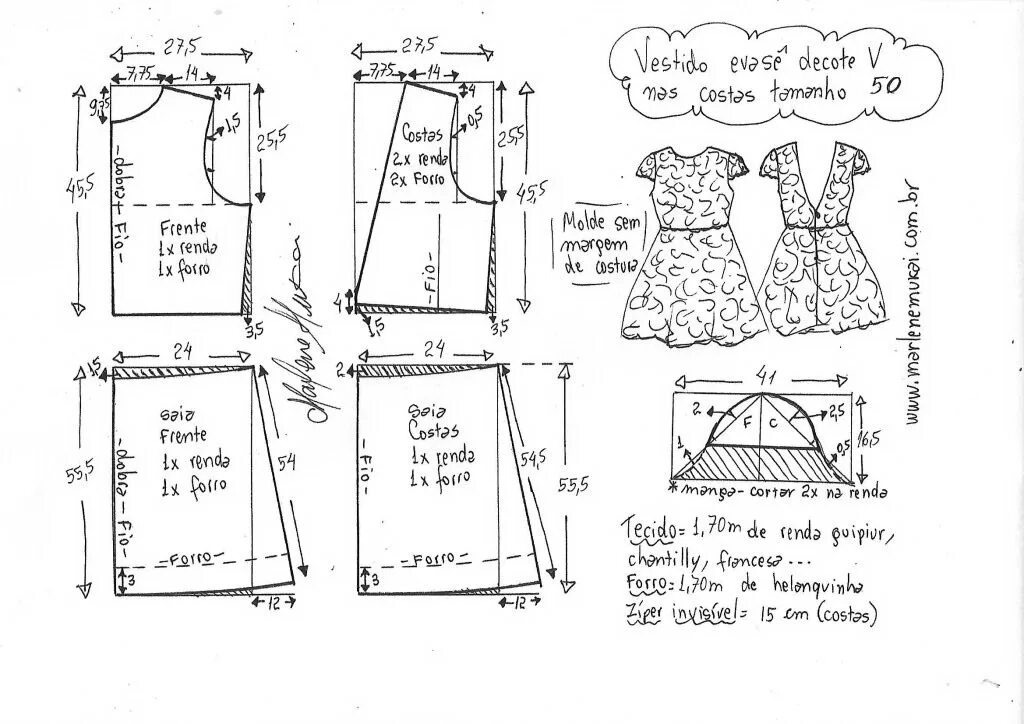 Vestido evasê decote V
nas costas tamanho 50
27,5
7,75
14
4
9,75
1,5
25,5
45,5
-dobra-Fio-
Frente
1x renda
1x forro
3,5
27,5
7,75
14
4
0,5
Costas
2x renda
2x Forro
25,5
45,5
-Fio-
4
1,5
3,5
Molde sem
margem
de costura
www.marlenemukai.com.br
24
1,5
saia
Frente
1x renda
1x forro
55,5
-dobra-Fio-
54
-Forro-
3
12
24
2
saia
Costas
1x renda
1x forro
-Fio-
54,5
55,5
-Forro-
3
12
41
2
F
C
2,5
1
0,5
16,5
* manga-cortar 2x na renda
Tecido= 1,70m de renda guipiur,
chantilly, francesa ...
Forro=1,70m de helanquinha
Zíper invisível= 15 cm (costas)